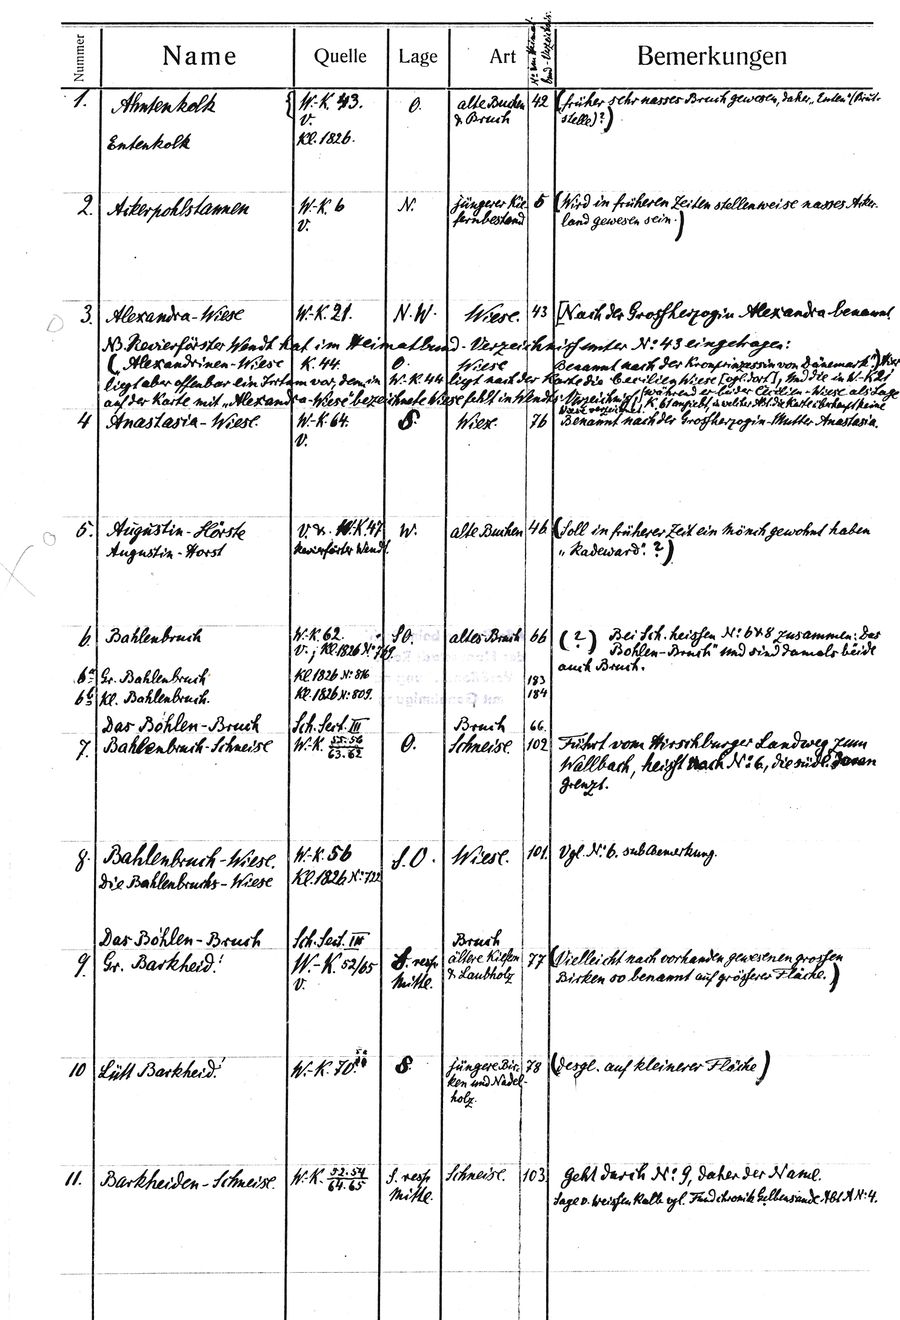 Nummer Name Quelle Lage Art Nº im Heimatbund-Verzeichnis. Bemerkungen
1. Ahntenkolk W.-K. 43. O. alte Buchen 42 (früher sehr nasses Bruch gewesen, daher „Enten“ (Brut-
V. & Bruch stelle)?)
Entenkolk Kl. 1826.
2. Ackerpohlstannen W.-K. 6 N. jüngerer Kie- 5 (Wird in früheren Zeiten stellenweise nasses Acker-
V. fernbestand land gewesen sein.)
3. Alexandra-Wiese W.-K. 21. N.W. Wiese. 43 [Nach der Grossherzogin Alexandra benannt.
NB. Revierförster Wendt hat im Heimatbund-Verzeichnis unter Nº 43 eingetragen:
(„Alexandrinen-Wiese K. 44. O. Wiese Benannt nach der Kronprinzessin von Dänemark“) Hier
liegt aber offenbar ein Irrtum vor, denn in W.-K. 44 liegt nach der Karte die Cecilien Wiese [vgl. dort], und die in W.-K. 21
auf der Karte mit „Alexandra-Wiese“ bezeichnete Wiese fehlt in Wendts Verzeichnis, während er bei der Cecilien-Wiese als Lage
K. 61 angiebt, in welcher Abt. die Karte überhaupt keine
Wiese verzeichnet.
4 Anastasia-Wiese W.-K. 64. S. Wiese. 76 Benannt nach der Grossherzogin-Mutter Anastasia.
V.
5. Augustin-Hörste V. & W.-K. 47 W. alte Buchen 46 (Soll in früherer Zeit ein Mönch gewohnt haben
Augustin-Horst Revierförster Wendt. „Radeward“. ?)
6. Bahlenbruch W.-K. 62. SO. altes Bruch 66 (?) Bei Sch. heissen Nº 6 & 8 zusammen: „Das
V.; Kl. 1826 Nº 769. Bohlen-Bruch“ und sind damals beide
6a Gr. Bahlenbruch Kl. 1826 Nº 816 183 auch Bruch.
6b Kl. Bahlenbruch. Kl. 1826 Nº 809. 184
Das Bohlen-Bruch Sch. Sect. III Bruch 66.
7. Bahlenbruch-Schneise W.-K. 55.56 O. Schneise. 102 Führt vom Hirschburger Landweg zum
63.62 Wallbach, heisst nach Nº 6, die südl. daran
grenzt.
8. Bahlenbruch-Wiese. W.-K. 56 S.O. Wiese. 101. Vgl. Nº 6. sub Bemerkung.
Die Bahlenbruchs-Wiese Kl. 1826 Nº 722
Das Bohlen-Bruch Sch. Sect. III Bruch
9. Gr. Barkheid! W.-K. 52/65 S. resp. ältere Kiefern 77 (Vielleicht nach vorhanden gewesenen grossen
V. Mitte. & Laubholz Birken so benannt auf grösserer Fläche.)
10 Lütt Barkheid! W.-K. 70. S. jüngere Bir- 78 (desgl. auf kleinerer Fläche)
ken und Nadel-
holz.
11. Barkheiden-Schneise. W.-K. 52.54 S. resp. Schneise. 103 Geht durch Nº 9, daher der Name.
64.65 Mitte. Sage v. weissen Kalle vgl. Fundchronik Gelbensande Abt. A Nº 4.